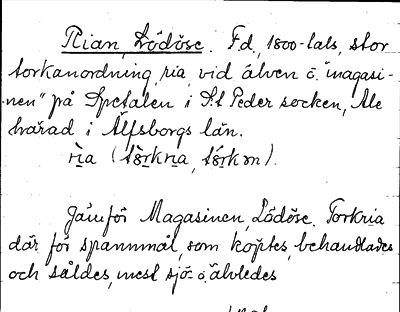 Rian, Lödöse. Fd., 1800-tals, stor
torkanordning, ria, vid älven o. "magasi-
nen" på Spetalen i S:t Peder socken, Ale
härad i Älfsborgs län.
rìa (tö̀rkrıa, tö́rkm).
Jämför Magasinen, Lödöse. Torkria
där för spannmål, som köptes, behandlades
och såldes, mest sjö- o. älvledes